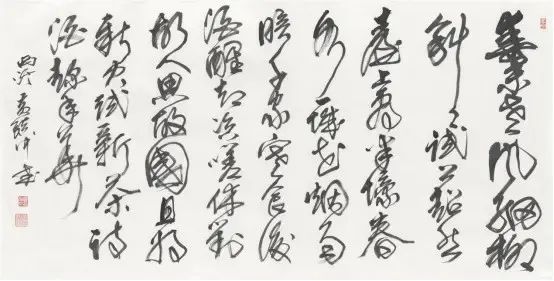 春未老風細柳
斜斜試上超然
臺上看半壕春
水一城花烟雨
暗千家寒食後
酒醒却咨嗟休對
故人思故國且將
新火試新茶詩
酒趁年華
書